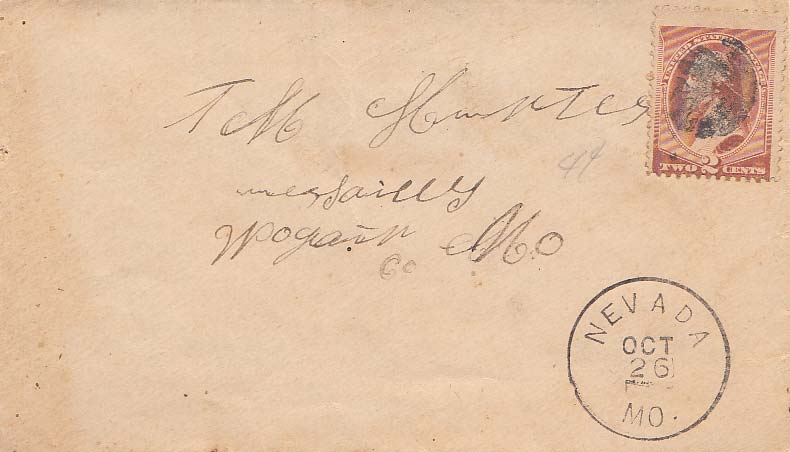 UNITED STATES POSTAGE
T M Hunter
4¢
TWO 2 CENTS
versailles
Mogan Mo
Co
NEVADA
OCT
26
MO.